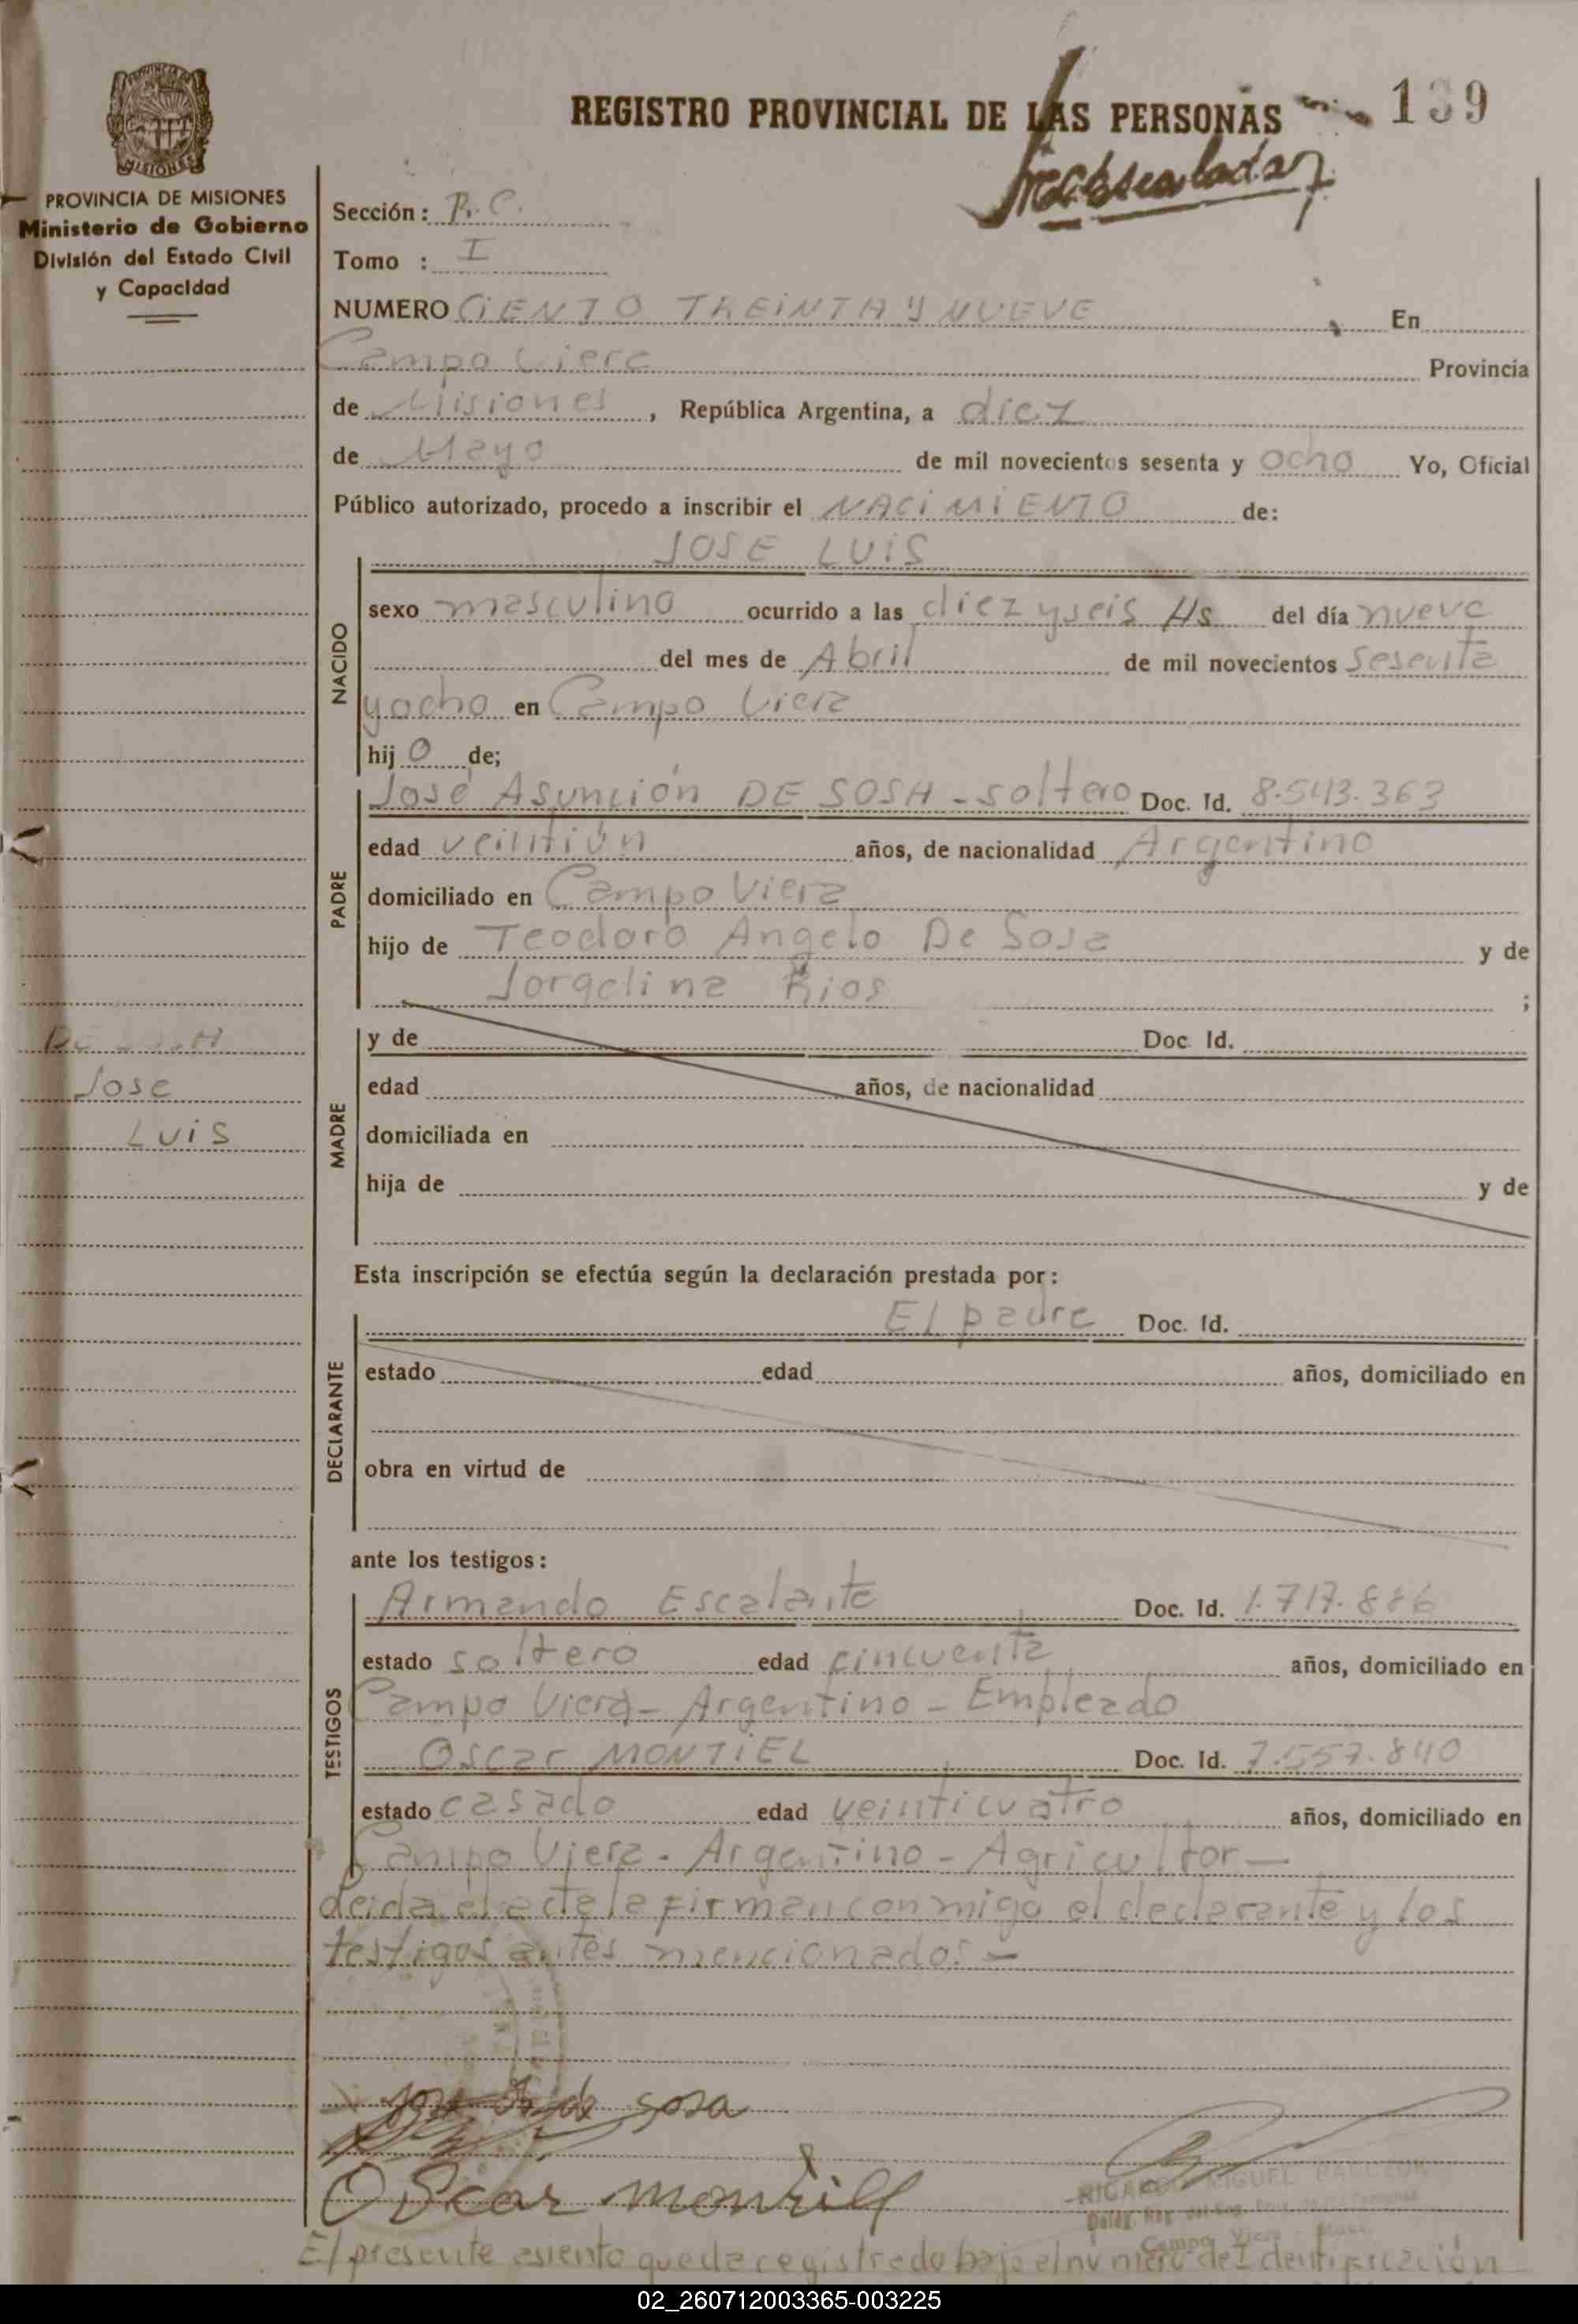 REGISTRO PROVINCIAL DE LAS PERSONAS 139
PROVINCIA DE MISIONES
Ministerio de Gobierno
División del Estado Civil
y Capacidad
Sección: R. C.
Tomo : I
NUMERO CIENTO TREINTA Y NUEVE En
Campo Viera Provincia
de Misiones, República Argentina, a diez
de Mayo de mil novecientos sesenta y ocho Yo, Oficial
Público autorizado, procedo a inscribir el NACIMIENTO de:
JOSE LUIS
NACIDO
sexo masculino ocurrido a las diez y seis Hs del día nueve
del mes de Abril de mil novecientos sesenta
y ocho en Campo Viera
hijo de;
PADRE
José Asunción DE SOSA - soltero Doc. Id. 8.543.363
edad veintiún años, de nacionalidad Argentino
domiciliado en Campo Viera
hijo de Teodoro Angelo De Sosa y de
Jorgelina Rios ;
MADRE
y de Doc Id.
edad años, de nacionalidad
domiciliada en
hija de y de
Jose
Luis
Esta inscripción se efectúa según la declaración prestada por:
DECLARANTE
El padre Doc. Id.
estado edad años, domiciliado en
obra en virtud de
ante los testigos:
TESTIGOS
Armando Escalante Doc. Id. 1.717.886
estado soltero edad cincuenta años, domiciliado en
Campo Viera - Argentino - Empleado
Oscar MONTIEL Doc. Id. 7.557.840
estado casado edad veinticuatro años, domiciliado en
Campo Viera - Argentino - Agricultor -
el acta la firman conmigo el declarante y los
testigos antes mencionados -
de sosa
Oscar montiel
RICARDO MIGUEL
Campo Viera
El presente asiento queda registrado bajo el numero de Identificación
02_260712003365-003225